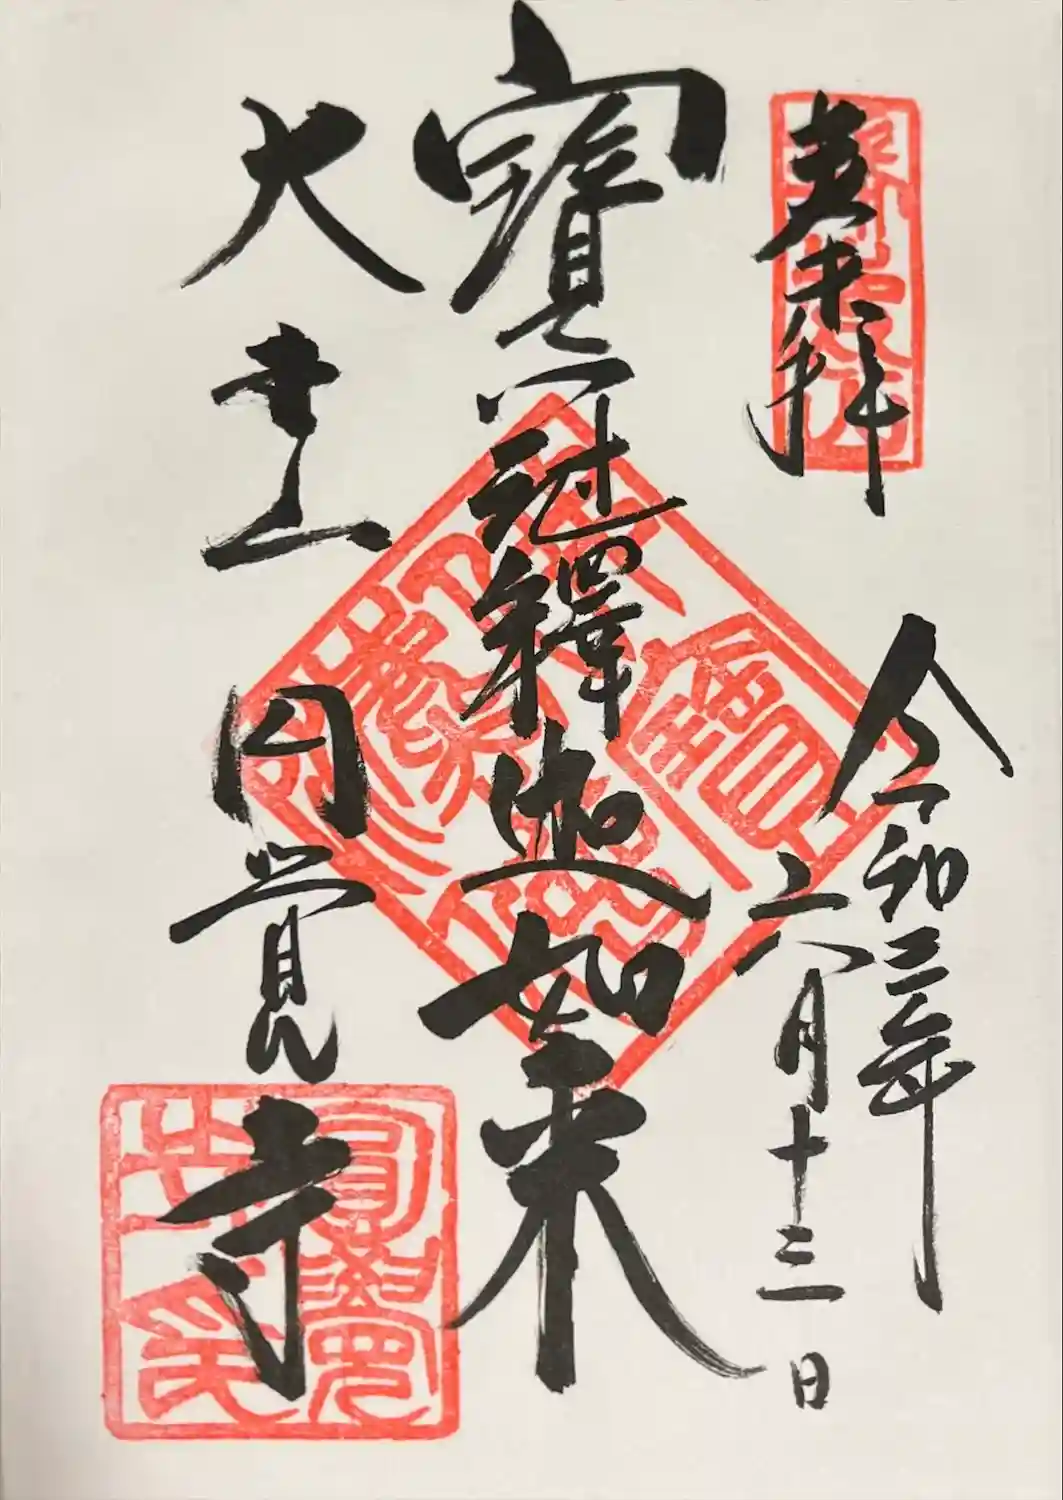 奉来拝
令和三年
六月十三日
寳冠釋迦如来
大本山
円覚寺